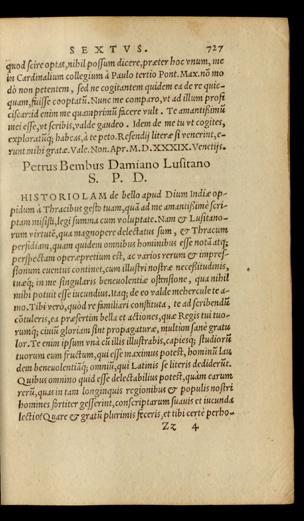 SEXTVS. 727
quod scire optat, nihil possum dicere, præter hoc vnum, me
in Cardinalium collegium à Paulo tertio Pont. Max. nō mo
dò non petentem, sed ne cogitantem quidem ea de re quic-
quam, fuisse cooptatū. Nunc me comparo, vt ad illum profi
ciscar: id enim me quamprimū facere vult. Te amantißimū
mei esse, vt scribis, valde gaudeo. Idem de me tu vt cogites,
exploratūq; habeas, à te peto. Resendij literæ si venerint, e-
runt mihi gratæ. Vale. Non. Apr. M.D.XXXIX. Venetijs.
Petrus Bembus Damiano Lusitano
S. P. D.
HISTORIOLAM de bello apud Dium Indiæ op-
pidum à Thracibus gesto tuam, quā ad me amantißimè scri-
ptam misisti, legi summa cum voluptate. Nam & Lusitano-
rum virtutē, qua magnopere delectatus sum, & Thracum
perfidiam, quam quidem omnibus hominibus esse notā atq;
perspectam operæpretium est, ac varios rerum & impres-
sionum euentus continet, cum illustri nostræ necessitudinis,
tuæq; in me singularis beneuolentiæ ostensione, qua nihil
mihi potuit esse iucundius. Itaq; de eo valde mehercule te a-
mo. Tibi verò, quòd re familiari constituta, te ad scribendū
cōtuleris, ea præsertim bella et actiones, quæ Regis tui tuo-
rumq; ciuiū gloriam sint propagaturæ, multum sanè gratu
lor. Te enim ipsum vnà cū illis illustrabis, capiesq; studiorū
tuorum eum fructum, qui esse maximus potest, hominū lau
dem beneuolentiāq; omniū, qui Latinis se literis dediderūt.
Quibus omnino quid esse delectabilius potest, quàm earum
rerū, quas in tam longinquis regionibus & populis nostri
homines fortiter gesserint, conscriptarum suauis et iucunda
lectio? Quare & gratū plurimis feceris, et tibi certè perho-
Zz 4